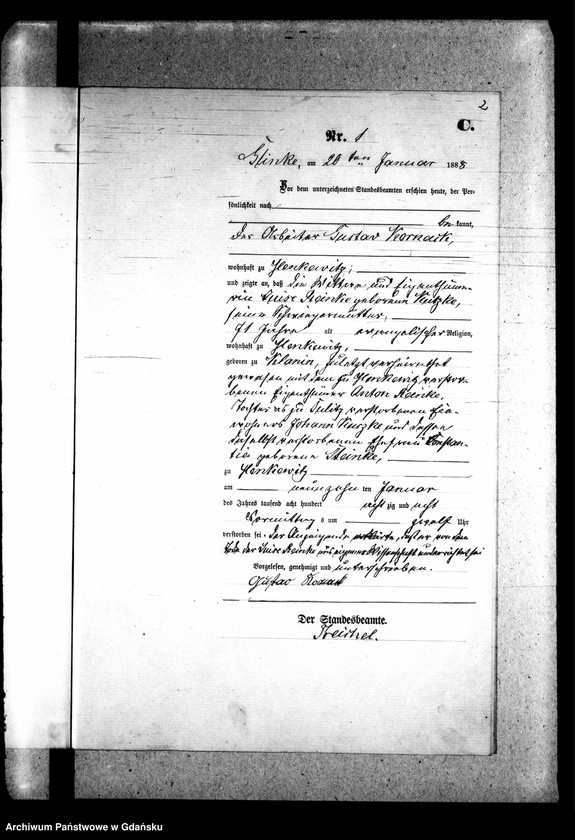 2
C.
Nr. 1
Glinke, am 20 ten Januar 1888
Vor dem unterzeichneten Standesbeamten erschien heute, der Per-
sönlichkeit nach
be kannt,
der Arbeiter Gustav Kornack,
wohnhaft zu Henkewitz,
und zeigte an, daß die Wittwe und Eigenthüme-
rin Luise Reinke geborene Kutzke,
seine Schwiegermutter,
Jahre alt evangelischer Religion,
wohnhaft zu Henkewitz,
geboren zu Klanin, zuletzt verheirathet
gewesen mit dem zu Henkewitz verstor-
benen Eigenthümer Anton Reinke,
Tochter des zu verstorbenen Ein-
wohners Johann und dessen
daselbst verstorbenen Ehefrau Constan-
tia geborene Steinke,
zu Henkewitz
am neunzehn ten Januar
des Jahres tausend acht hundert acht zig und acht
Vormittags um zwölf Uhr
verstorben sei. der Anzeigende erklärte, daß er von dem
Tode der Luise Reinke aus eigener Wissenschaft unterrichtet sei
Vorgelesen, genehmigt und unterschrieben.
Gustav Kornack
Der Standesbeamte.
Archiwum Państwowe w Gdańsku